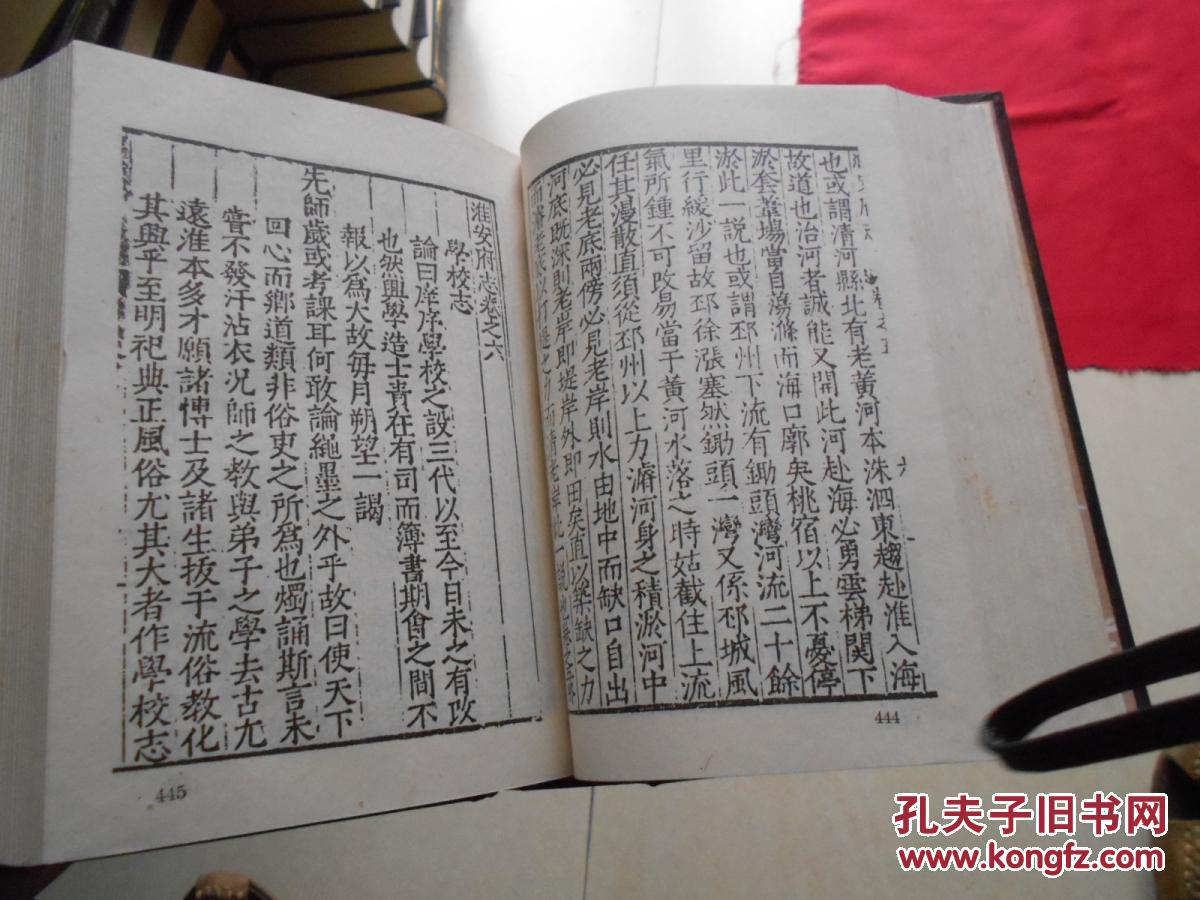 也或謂清河縣北有老黃河本洙泗東趨赴淮入海
故道也治河者誠能又開此河赴海必勇雲梯関下
淤套葦場當自蕩滌而海口廓矣桃宿以上不憂停
淤此一説也或謂邳州下流有鋤頭灣河流二十餘
里行緩沙留故邳徐漲塞然鋤頭一灣又係邳城風
氣所鍾不可改易當于黃河水落之時姑截住上流
任其漫散直須從邳州以上力濬河身之積淤河中
必見老底兩傍必見老岸則水由地中而缺口自出
河底既深則老岸即堤岸外即田矣直以築缺之力
444
淮安府志卷之六
學校志
論曰庠序學校之設三代以至今日未之有改
也然興學造士責在有司而簿書期會之間不
報以為大故毎月朔望一謁
先師歲或考課耳何敢論繩墨之外乎故曰使天下
回心而鄉道類非俗吏之所為也燭誦斯言未
嘗不發汗沾衣况師之教與弟子之學去古尤
遠淮本多才願諸博士及諸生拔于流俗教化
其興乎至明祀典正風俗尤其大者作學校志
445
孔夫子旧书网
www.kongfz.com